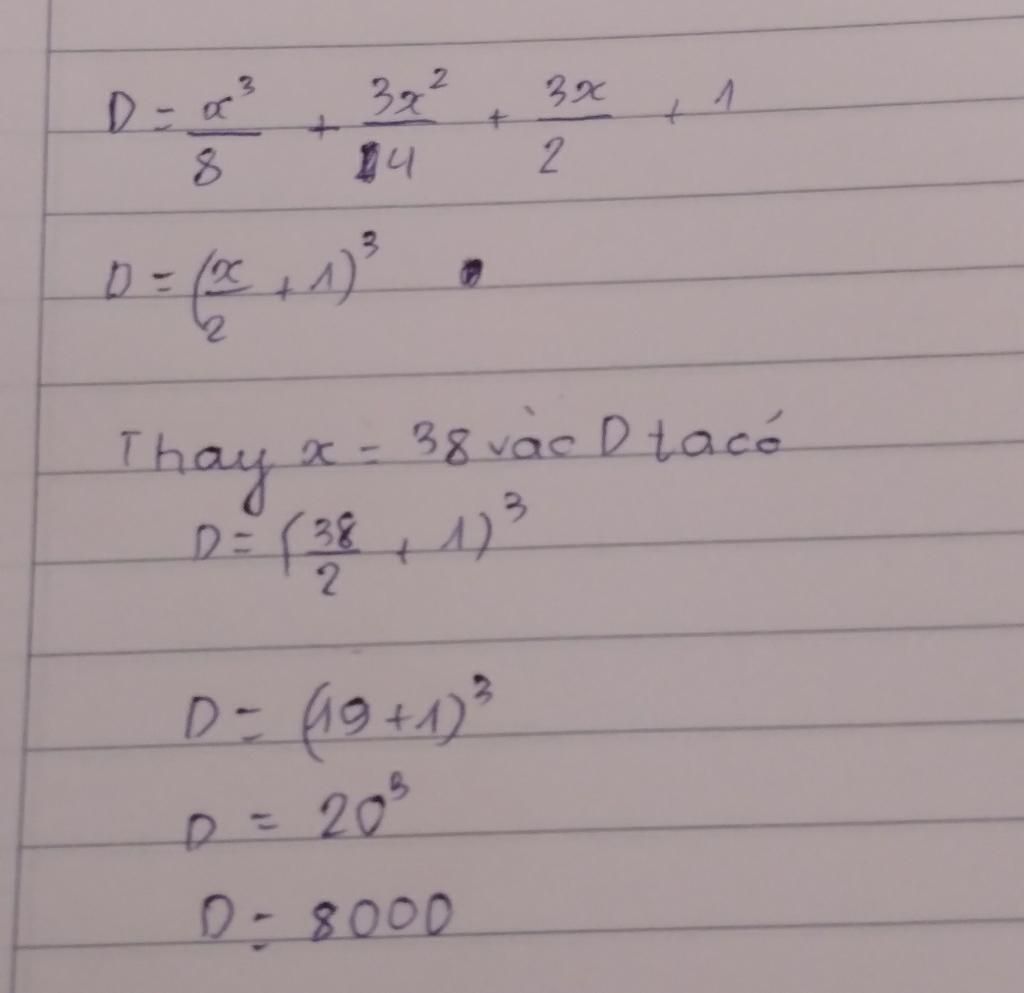 D = x³/8 + 3x²/4 + 3x/2 + 1
D = (x/2 + 1)³
Thay x = 38 vào D ta có
D = (38/2 + 1)³
D = (19 + 1)³
D = 20³
D = 8000